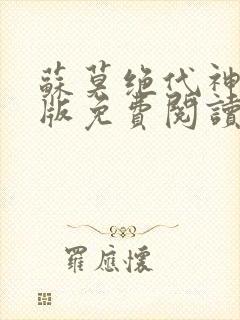 蘇莫绝代神
版免費閱讀
羅應懷